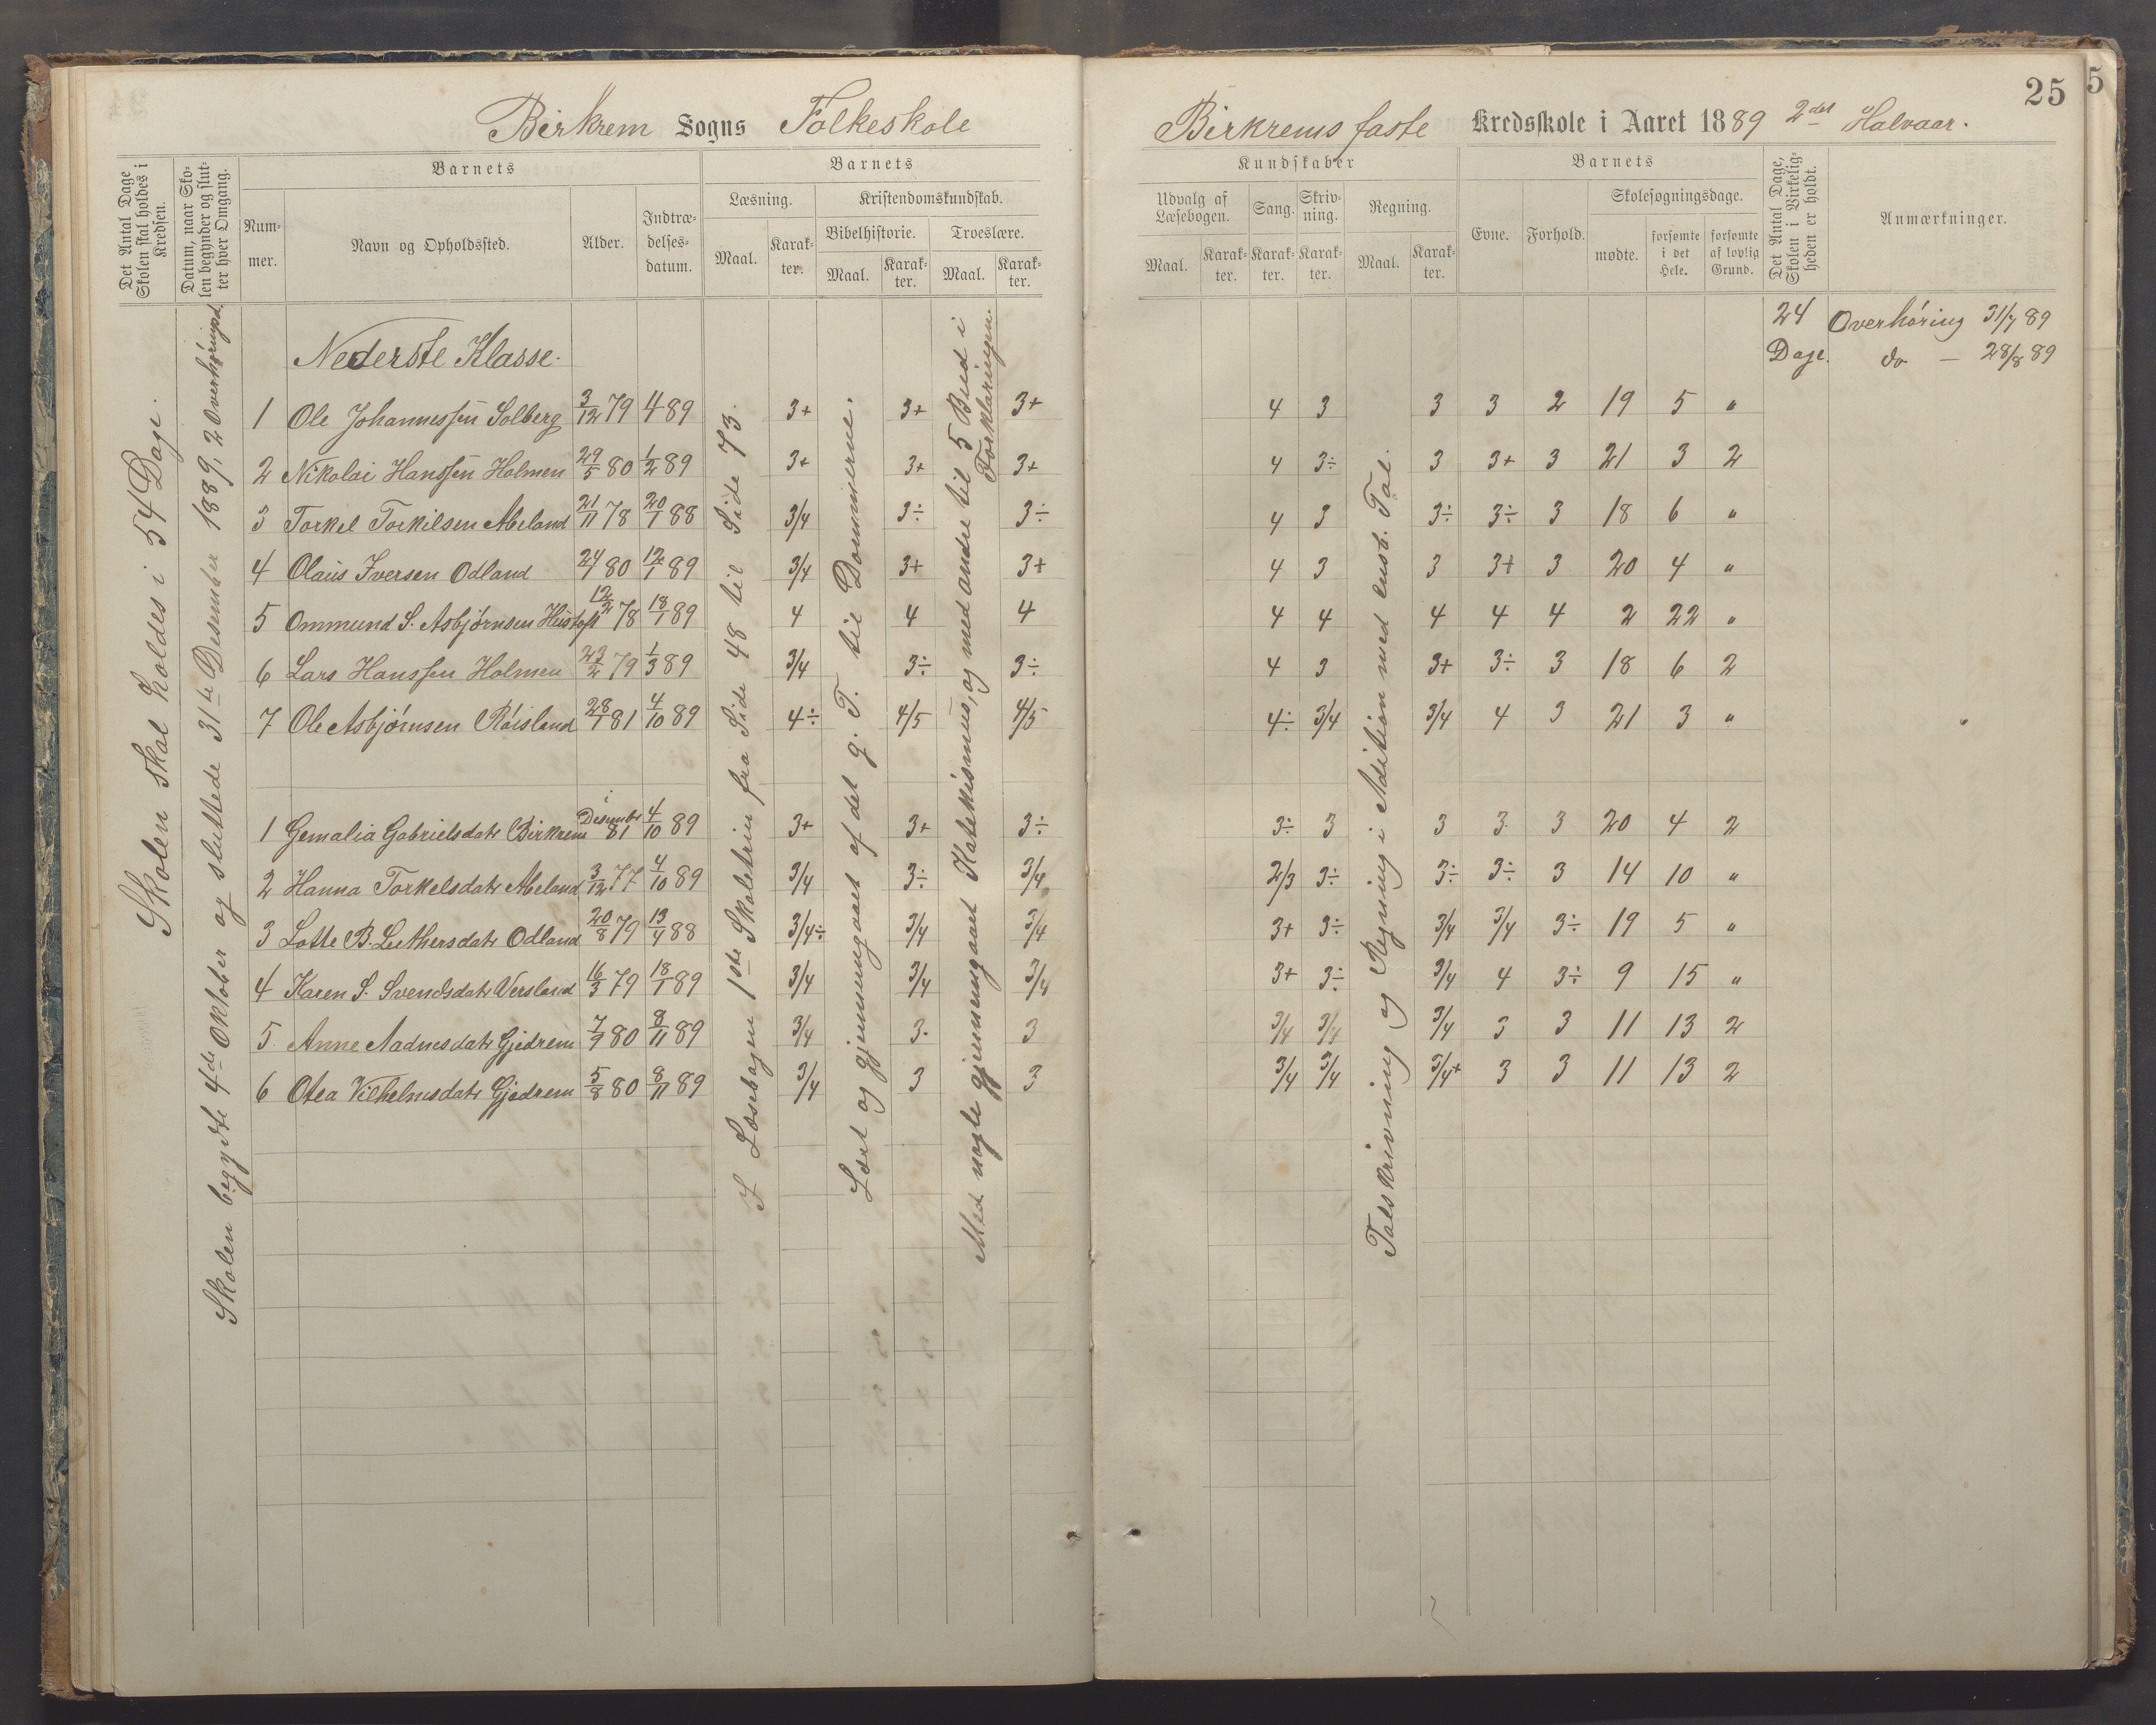 Birkrem Sogns Folkeskole
Det Antal Dage Skolen skal holdes i Kredsen.
Datum, naar Skolen begynder og slutter hver Omgang.
Barnets
Nummer.
Navn og Opholdssted.
Alder.
Indtrædelsesdatum.
Barnets
Læsning.
Maal.
Karakter.
Kristendomskundskab.
Bibelhistorie.
Maal.
Karakter.
Troeslære.
Maal.
Karakter.
Skolen skal holdes i 54 Dage.
Skolen begyndte 4de Oktober og sluttede 31te Desember 1889, 2 Overhøringsd.
I Læsebogen 1ste Skoletrin fra Side 48 til Side 73.
Læst og gjennemgaaet af det g. T. til Dommerne.
Med nogle gjennemgaaet Katekismus, og med andre til 5 Bud i Forklaringen.
Nederste Klasse.
1 Ole Johannessen Solberg 3/12 79 4 89 3+ 3+ 3+
2 Nikolai Hanssen Holmen 29/5 80 1/2 89 3+ 3+ 3+
3 Torkel Torkilsen Abeland 21/11 78 20/1 88 3/4 3÷ 3÷
4 Olaus Iversen Odland 24/1 80 12/1 89 3/4 3+ 3+
5 Ommund S. Asbjørnsen Hustoft 12/2 78 18/1 89 4 4 4
6 Lars Hanssen Holmen 23/2 79 1/3 89 3/4 3÷ 3÷
7 Ole Asbjørnsen Røisland 28/1 81 4/10 89 4÷ 4/5 4/5
1 Gemalia Gabrielsdatr Birkrem i Desember 81 4/10 89 3+ 3+ 3÷
2 Hanna Torkelsdatr Abeland 3/12 77 4/10 89 3/4 3÷ 3/4
3 Lotte B. Luthersdatr Odland 20/8 79 13/4 88 3/4÷ 3/4 3/4
4 Karen S. Svendsdatr Versland 16/3 79 18/1 89 3/4 3/4 3/4
5. Anne Aadnesdatr Gjedrem 7/9 80 8/11 89 3/4 3. 3
6 Otea Vilhelmsdatr Gjedrem 5/8 80 8/11 89 3/4 3 3
25
5
Birkrems faste Kredsskole i Aaret 1889 2det Halvaar.
Kundskaber
Udvalg af Læsebogen.
Maal.
Karakter.
Sang.
Karakter.
Skrivning.
Karakter.
Regning.
Maal.
Karakter.
Barnets
Evne.
Forhold.
Skolesøgningsdage.
mødte.
forsømte i det Hele.
forsømte af lovlig Grund.
Det Antal Dage, Skolen i Virkeligheden er holdt.
Anmærkninger.
24 Dage.
Overhøring 31/7 89
do — 28/8 89
Talskrivning og Regning i Adition med ensb. Tal.
4 3 3 3 2 19 5 "
4 3÷ 3 3+ 3 21 3 2
4 3 3÷ 3÷ 3 18 6 "
4 3 3 3+ 3 20 4 "
4 4 4 4 4 2 22 "
4 3 3+ 3÷ 3 18 6 2
4÷ 3/4 3/4 4 3 21 3 "
3÷ 3 3 3. 3 20 4 2
2/3 3÷ 3÷ 3÷ 3 14 10 "
3+ 3÷ 3/4 3/4 3÷ 19 5 "
3+ 3÷ 3/4 4 3÷ 9 15 "
3/4 3/4 3/4 3 3 11 13 2
3/4 3/4 3/4+ 3 3 11 13 2